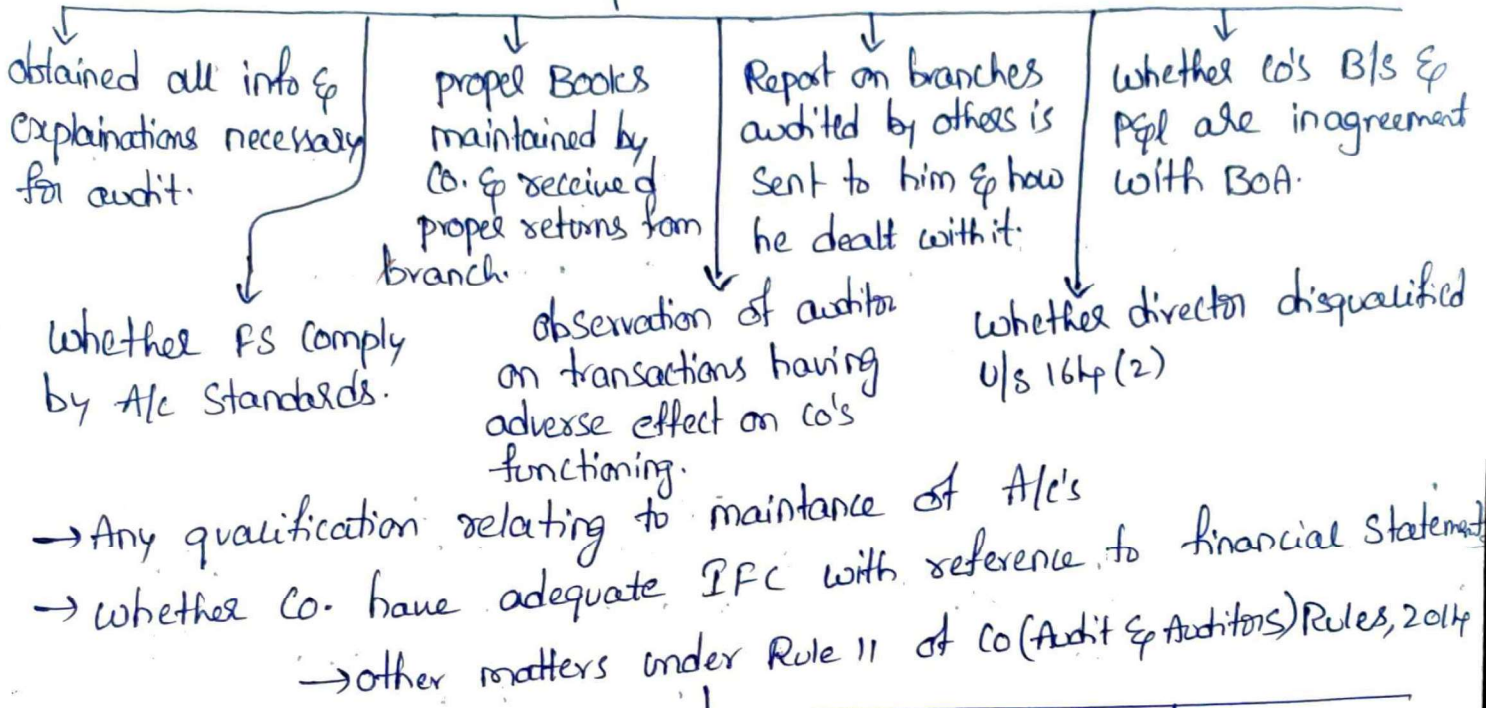 obtained all info &
explainations necessary
for audit.
proper Books
maintained by
Co. & received
proper returns from
branch.
Report on branches
audited by others is
sent to him & how
he dealt with it.
whether co's B/s &
P&l are inagreement
with BOA.
whether FS comply
by A/c Standards.
observation of auditor
on transactions having
adverse effect on co's
functioning.
whether director disqualified
u/s 164(2)
→ Any qualification relating to maintance of A/c's
→ whether Co. have adequate IFC with reference to financial Statement
→ other matters under Rule 11 of Co (Audit & Auditors) Rules, 2014